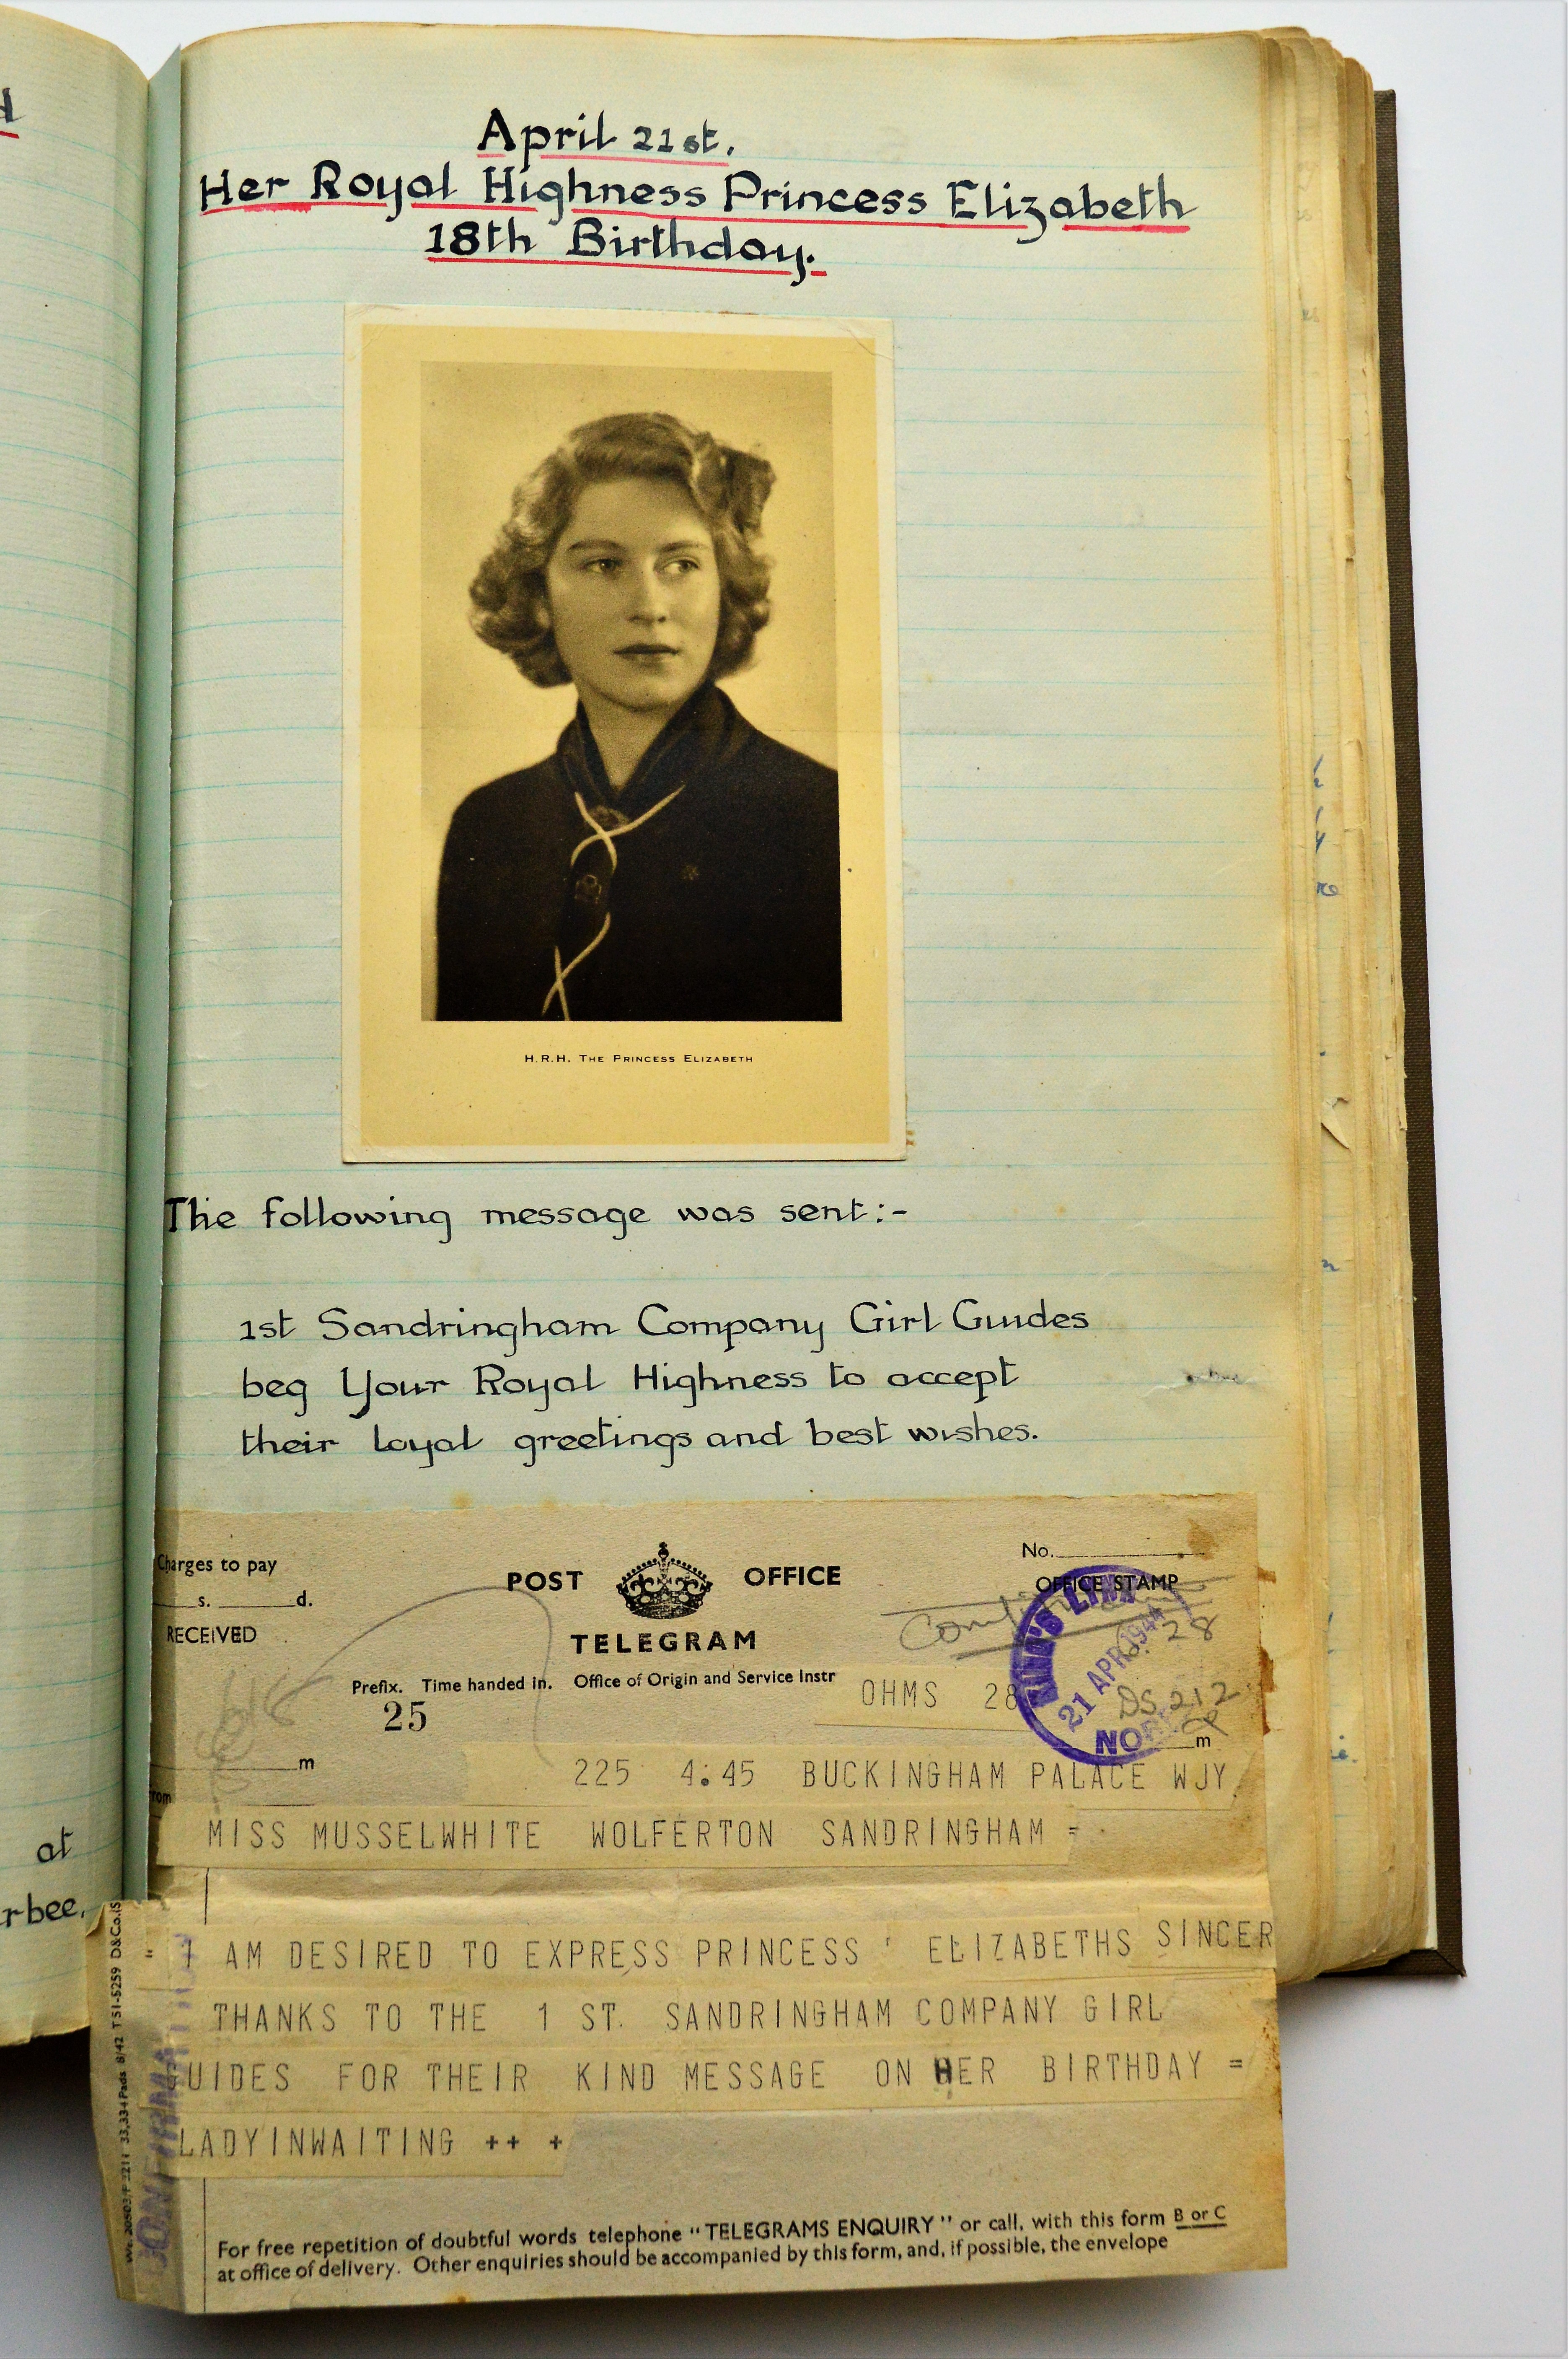 April 21st.
Her Royal Highness Princess Elizabeth
18th Birthday.
H.R.H. The Princess Elizabeth
The following message was sent:-
1st Sandringham Company Girl Guides
beg Your Royal Highness to accept
their loyal greetings and best wishes.
at
Charges to pay
s. d.
RECEIVED
POST OFFICE
TELEGRAM
Prefix. Time handed in. Office of Origin and Service Instr
25
No.
OFFICE STAMP
21 APR 1944
28
DS 212
OHMS 28
m
m
225 4.45 BUCKINGHAM PALACE WJY
MISS MUSSELWHITE WOLFERTON SANDRINGHAM =
= I AM DESIRED TO EXPRESS PRINCESS ' ELIZABETHS SINCER
THANKS TO THE 1 ST. SANDRINGHAM COMPANY GIRL
GUIDES FOR THEIR KIND MESSAGE ON HER BIRTHDAY =
LADYINWAITING ++ +
For free repetition of doubtful words telephone "TELEGRAMS ENQUIRY" or call, with this form B or C
at office of delivery. Other enquiries should be accompanied by this form, and, if possible, the envelope